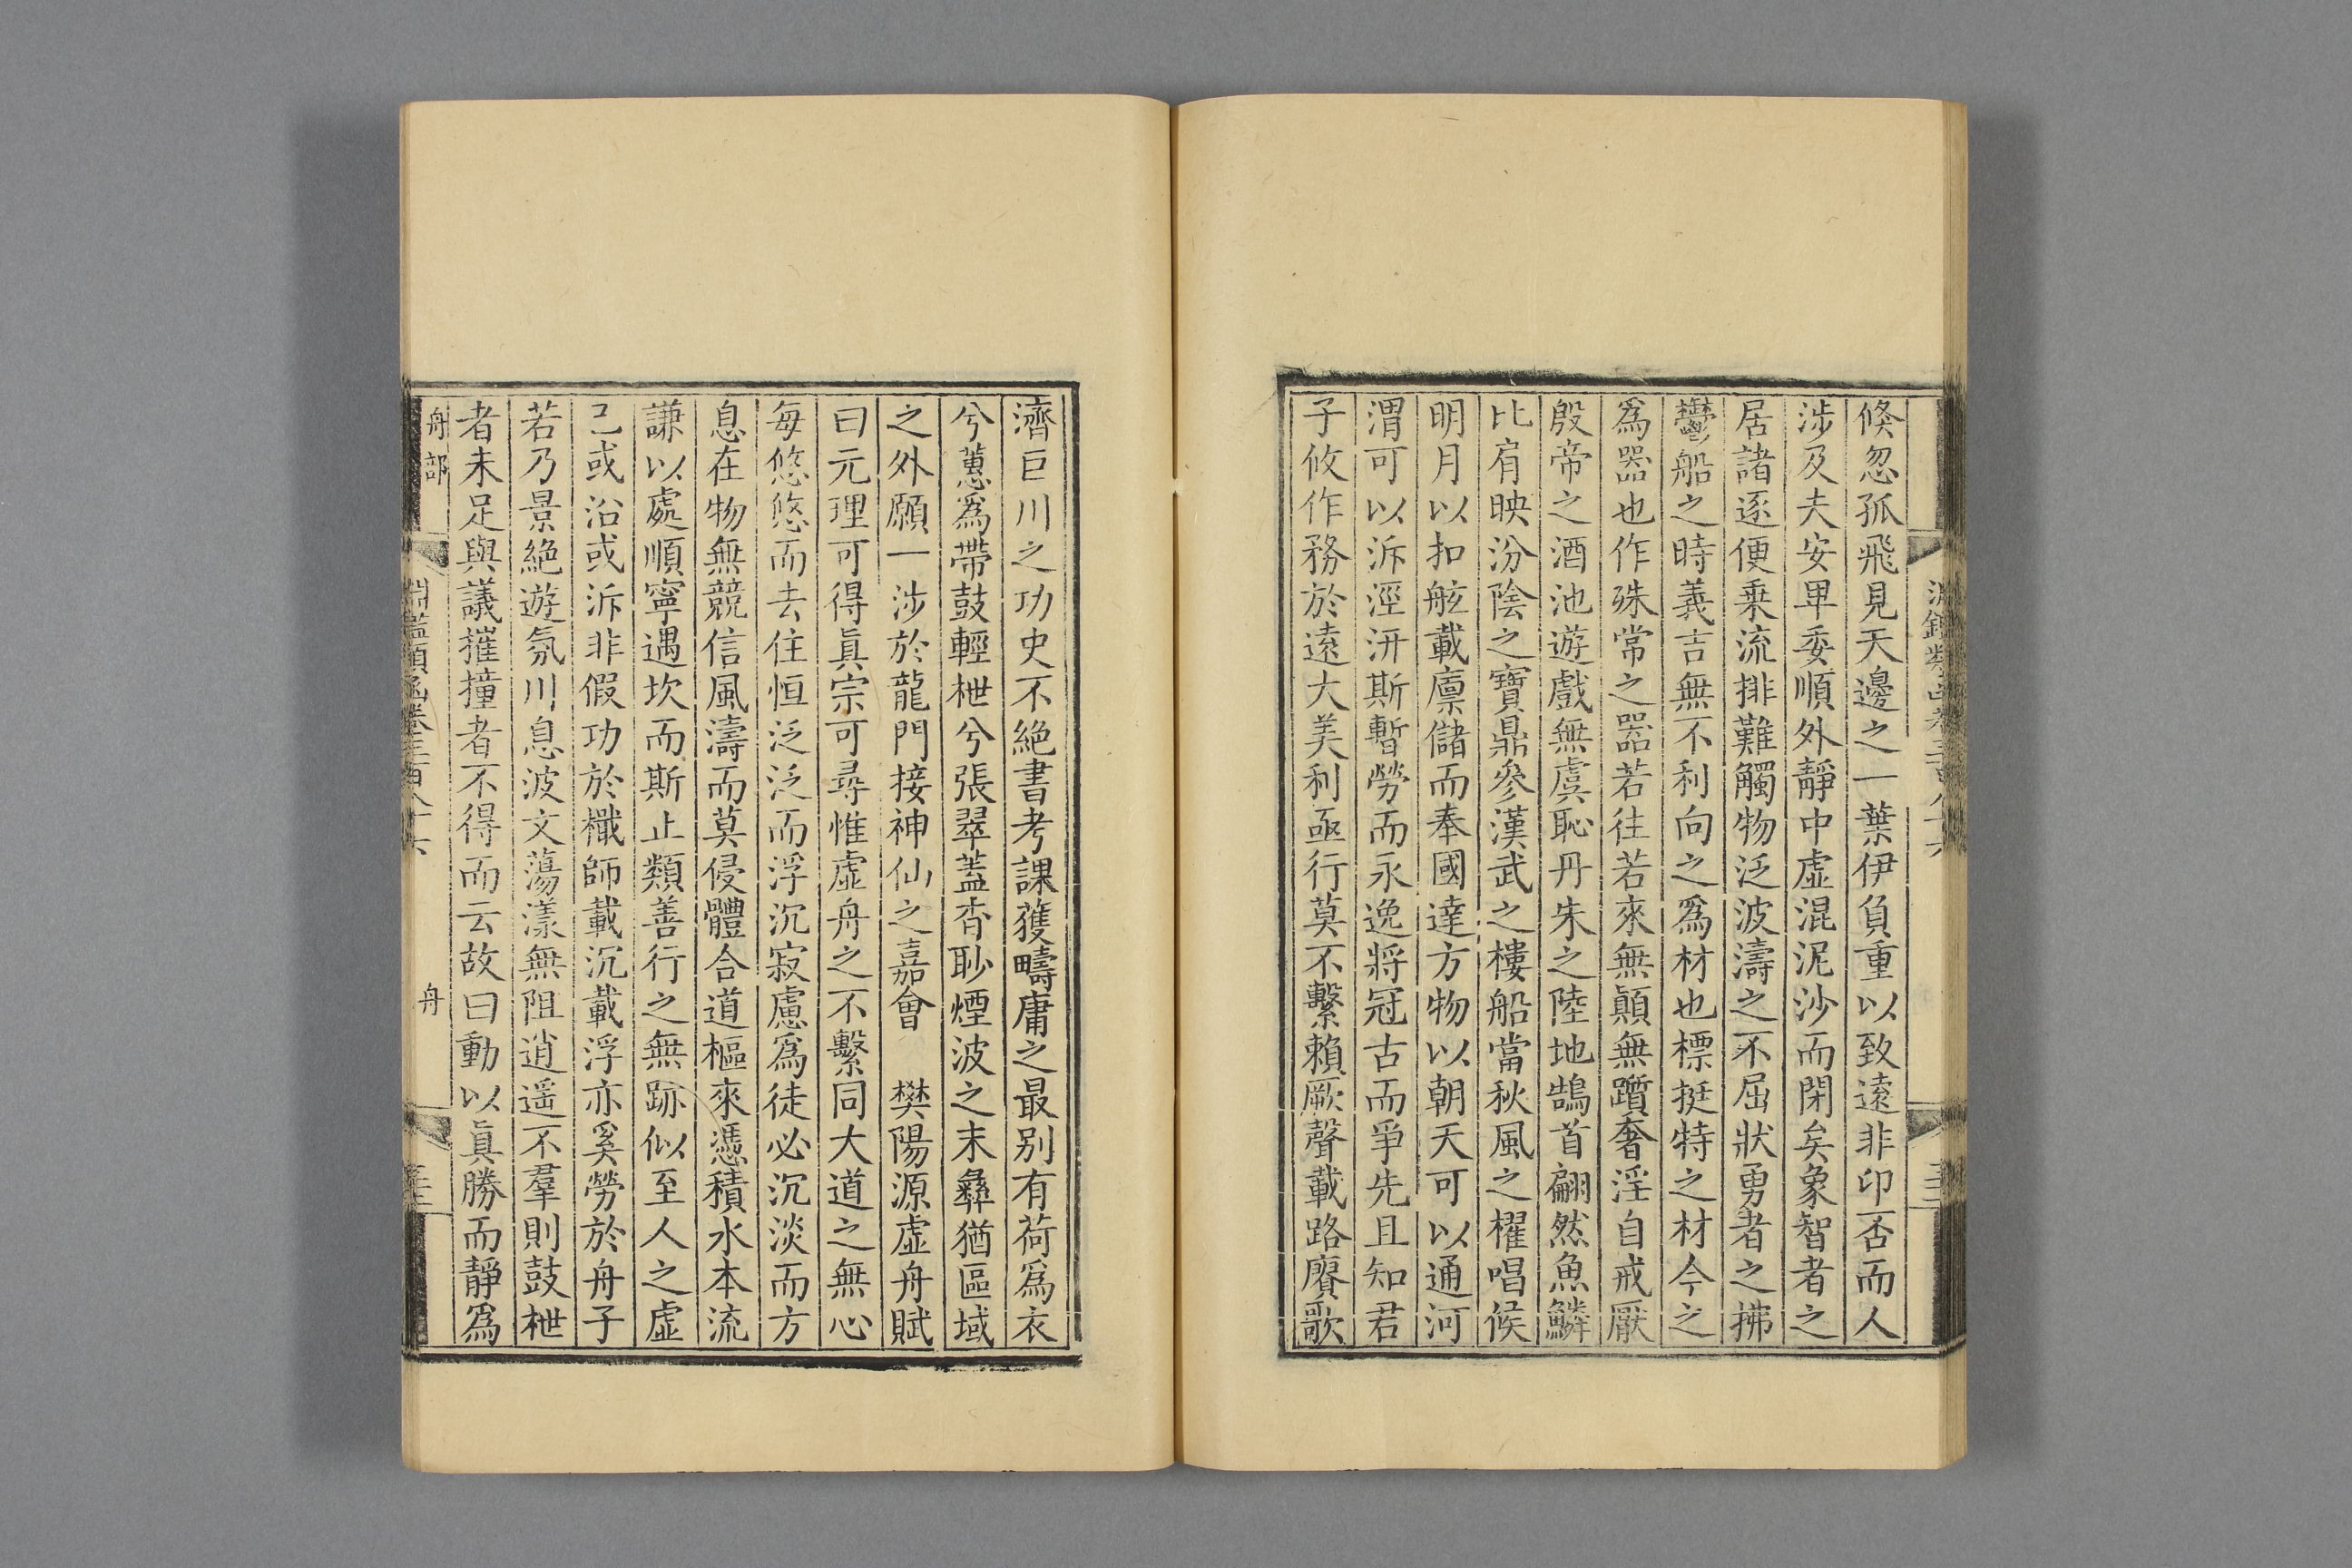 倏忽孤飛見天邊之一葉伊負重以致遠非卬否而人
涉及夫安卑委順外靜中虛混泥沙而閉矣象智者之
居諸逐便乗流排難觸物泛波濤之不屈狀勇者之拂
鬱船之時義吉無不利向之爲材也標挺特之材今之
爲器也作殊常之器若往若來無顚無躓奢淫自戒厭
殷帝之酒池遊戲無虞恥丹朱之陸地鷁首翩然魚鱗
比肩映汾陰之寶鼎參漢武之樓船當秋風之櫂唱候
明月以扣舷載廪儲而奉國達方物以朝天可以通河
渭可以泝涇汧斯暫勞而永逸將冠古而爭先且知君
子攸作務於遠大美利亟行莫不繫賴厥聲載路賡歌
濟巨川之功史不絶書考課獲疇庸之最别有荷爲衣
兮蕙爲帶鼓輕枻兮張翠蓋杳眇煙波之末彞猶區域
之外願一涉於龍門接神仙之嘉會　樊陽源虛舟賦
曰元理可得眞宗可尋惟虛舟之不繫同大道之無心
每悠悠而去住恒泛泛而浮沉寂慮爲徒必沉淡而方
息在物無競信風濤而莫侵體合道樞來憑積水本流
謙以處順寧遇坎而斯止類善行之無跡似至人之虛
己或沿或泝非假功於檝師載沉載浮亦奚勞於舟子
若乃景絶遊氛川息波文蕩漾無阻逍遥不羣則鼓枻
者未足與議摧撞者不得而云故曰動以眞勝而靜爲
舟部
淵鑑類函卷三百八十六
舟